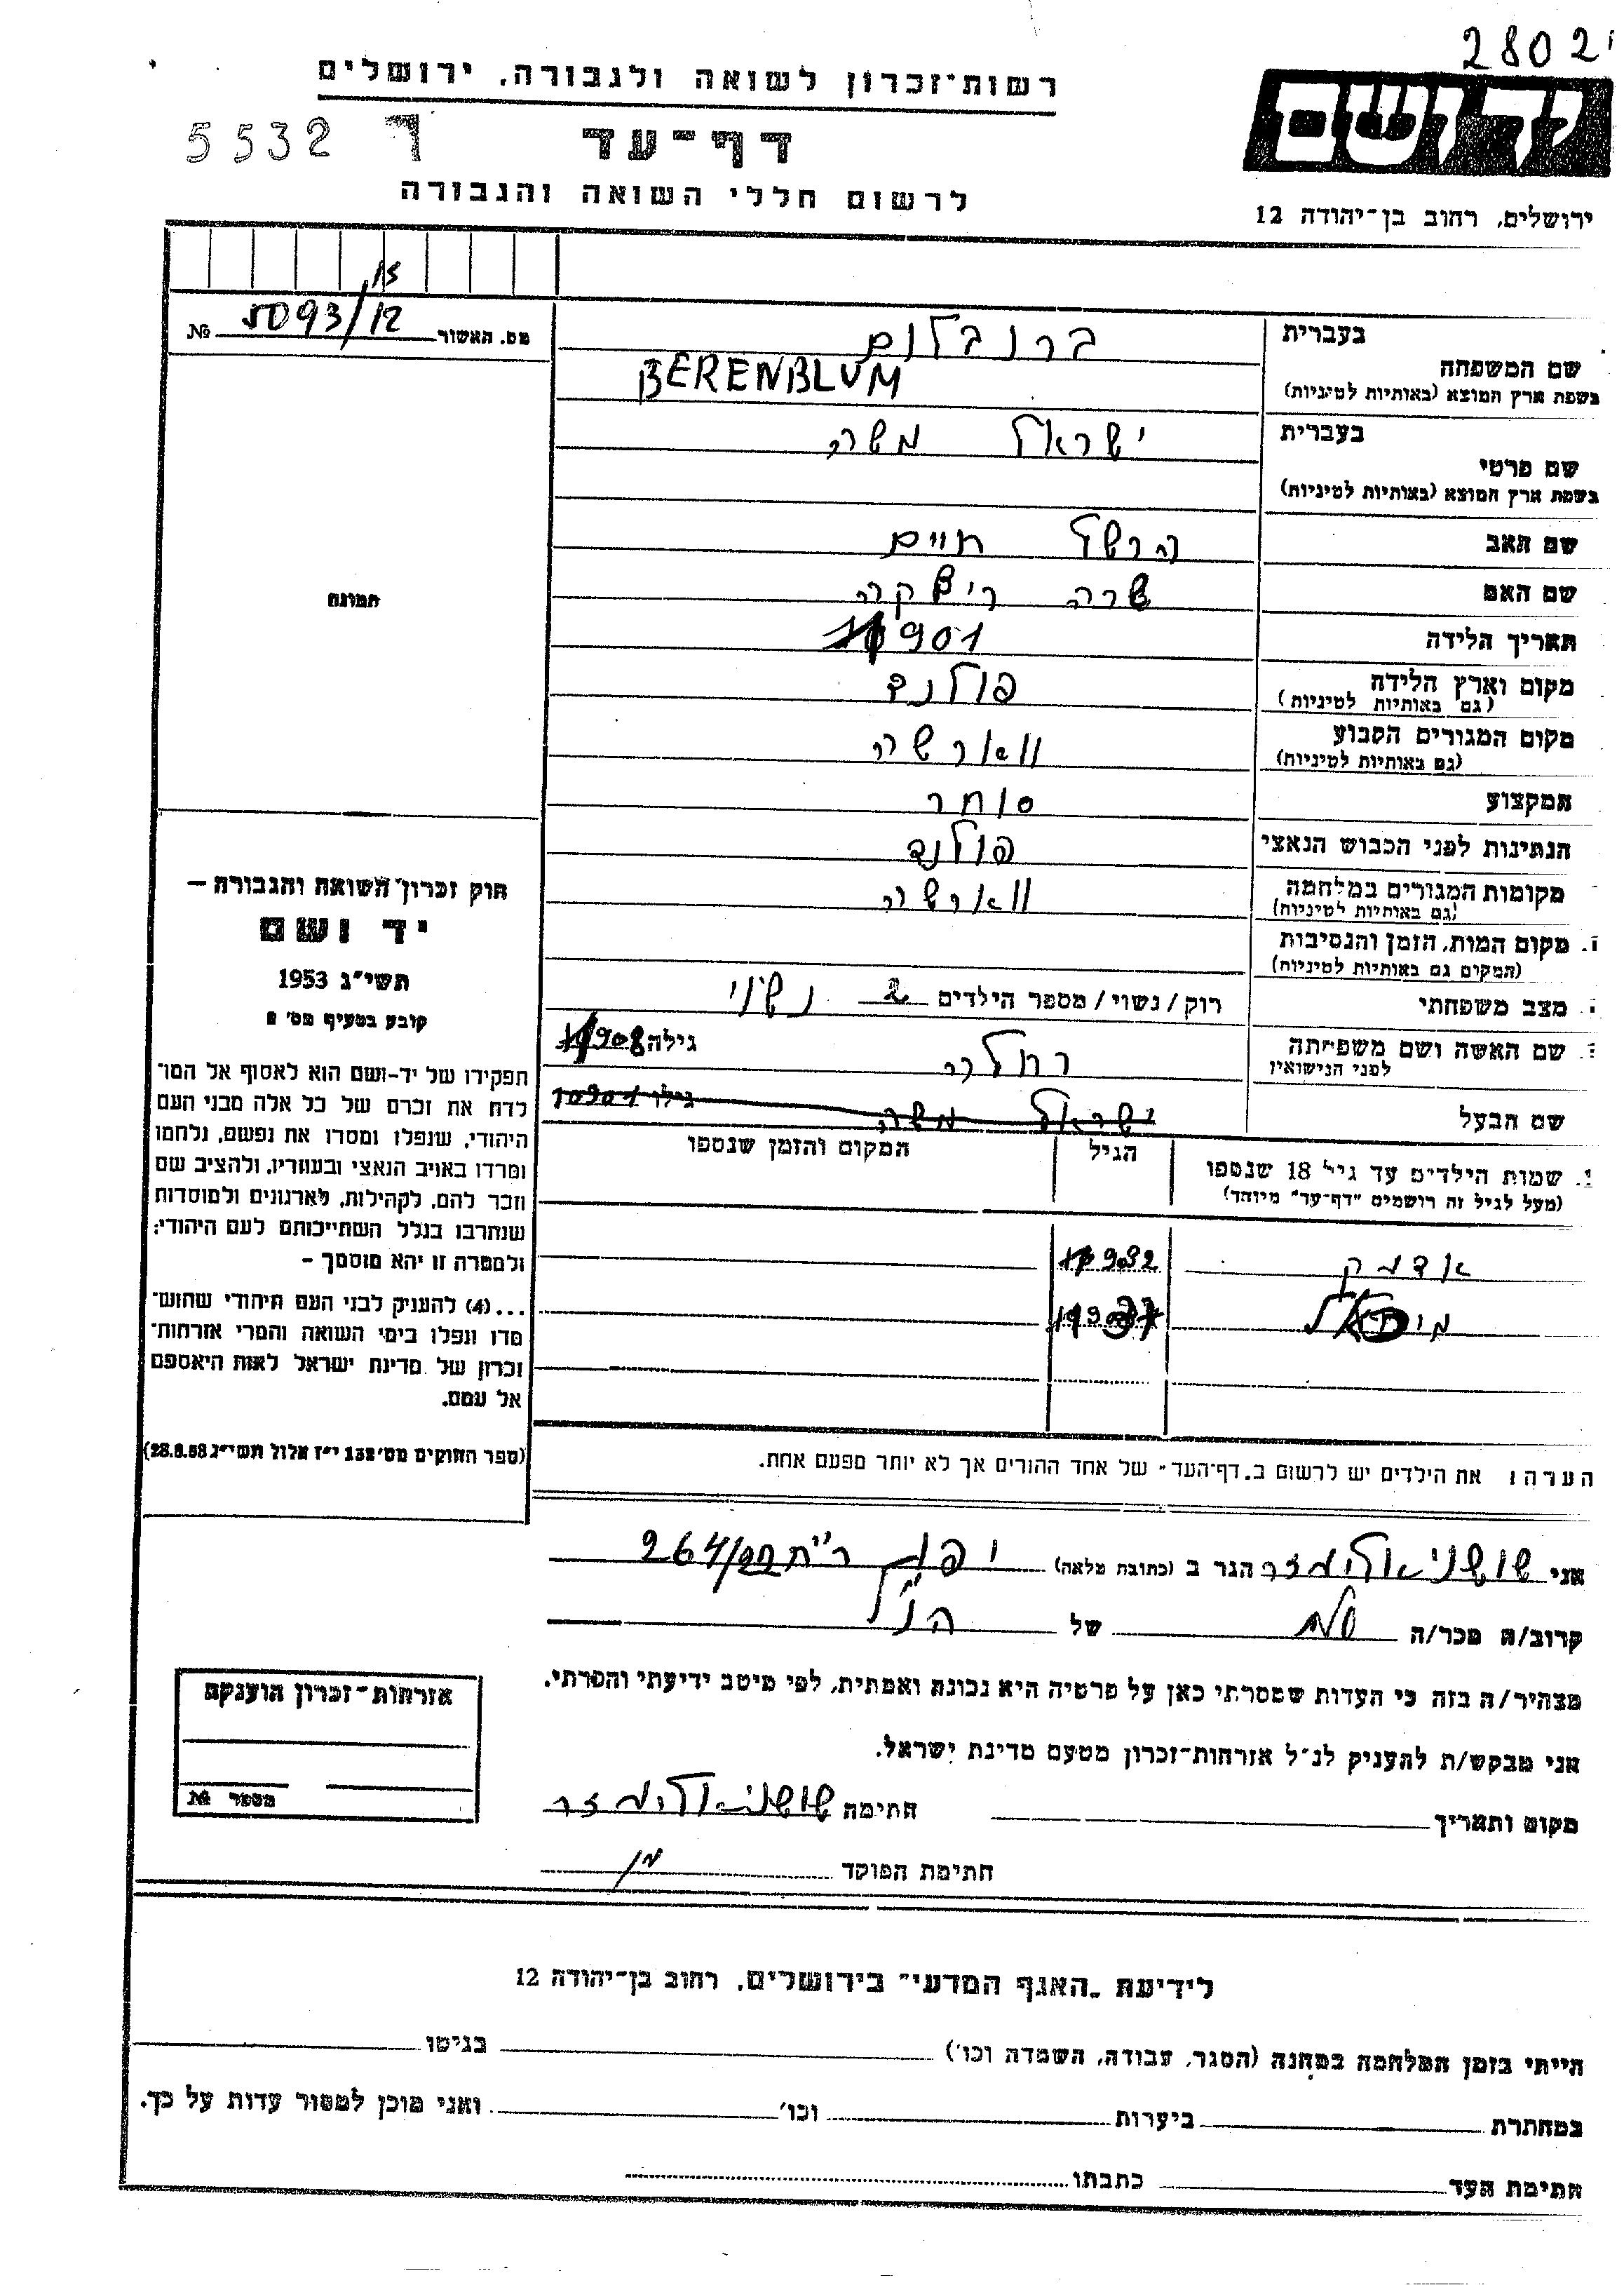 2802
רשות־זכרון לשואה ולגבורה, ירושלים
יד ושם
5532 ד דף־עד
לרשום חללי השואה והגבורה
ירושלים, רחוב בן־יהודה 12
15
מס. האשור 5093/12 №
בעברית ברנבלום
שם המשפחה
בשפת ארץ המוצא (באותיות לטיניות) BERENBLUM
בעברית ישראל משה
שם פרטי
בשפת ארץ המוצא (באותיות לטיניות)
שם האב הרשל חיים
שם האם שרה ריבקה
תמונה
תאריך הלידה 1901
מקום וארץ הלידה פולנד
(גם באותיות לטיניות)
מקום המגורים הקבוע ווארשה
(גם באותיות לטיניות)
המקצוע סוחר
הנתינות לפני הכבוש הנאצי פולנד
מקומות המגורים במלחמה ווארשה
(גם באותיות לטיניות)
מקום המות, הזמן והנסיבות
(המקום גם באותיות לטיניות)
מצב משפחתי רוק/נשוי/מספר הילדים 2 נשוי
שם האשה ושם משפחתה רחלה גילה 1908
לפני הנישואין
שם הבעל ישראל משה גילו 1901
שמות הילדים עד גיל 18 שנספו הגיל המקום והזמן שנספו
(מעל לגיל זה רושמים "דף־עד" מיוחד)
אדמק 1932
מיכאל 1937
הערה: את הילדים יש לרשום ב„דף־העד" של אחד ההורים אך לא יותר מפעם אחת.
חוק זכרון השואה והגבורה –
יד ושם
תשי״ג 1953
קובע בסעיף מס׳ 2
תפקידו של יד־ושם הוא לאסוף אל המו־
לדת את זכרם של כל אלה מבני העם
היהודי, שנפלו ומסרו את נפשם, נלחמו
ומרדו באויב הנאצי ובעוזריו, ולהציב שם
וזכר להם, לקהילות, לארגונים ולמוסדות
שנחרבו בגלל השתייכותם לעם היהודי;
ולמטרה זו יהא מוסמך –
...(4) להעניק לבני העם היהודי שהוש־
מדו ונפלו בימי השואה והמרי אזרחות־
זכרון של מדינת ישראל לאות היאספם
אל עמם.
(ספר החוקים מס׳ 132 י״ז אלול תשי״ג 28.8.53)
אני שושני אלימזר הגר ב (כתובת מלאה) יפו 264/22
קרוב/ה מכר/ה של הנ״ל
מצהיר/ה בזה כי העדות שמסרתי כאן על פרטיה היא נכונה ואמתית, לפי מיטב ידיעתי והכרתי.
אני מבקש/ת להעניק לנ״ל אזרחות־זכרון מטעם מדינת ישראל.
מקום ותאריך חתימה שושני אלימזר
חתימת הפוקד
אזרחות־זכרון הוענקה
מספר №
לידיעת „האגף המדעי" בירושלים, רחוב בן־יהודה 12
הייתי בזמן המלחמה במחנה (הסגר, עבודה, השמדה וכו׳) בגיטו
במחתרת ביערות וכו׳ ואני מוכן למסור עדות על כך.
חתימת העד כתבתו